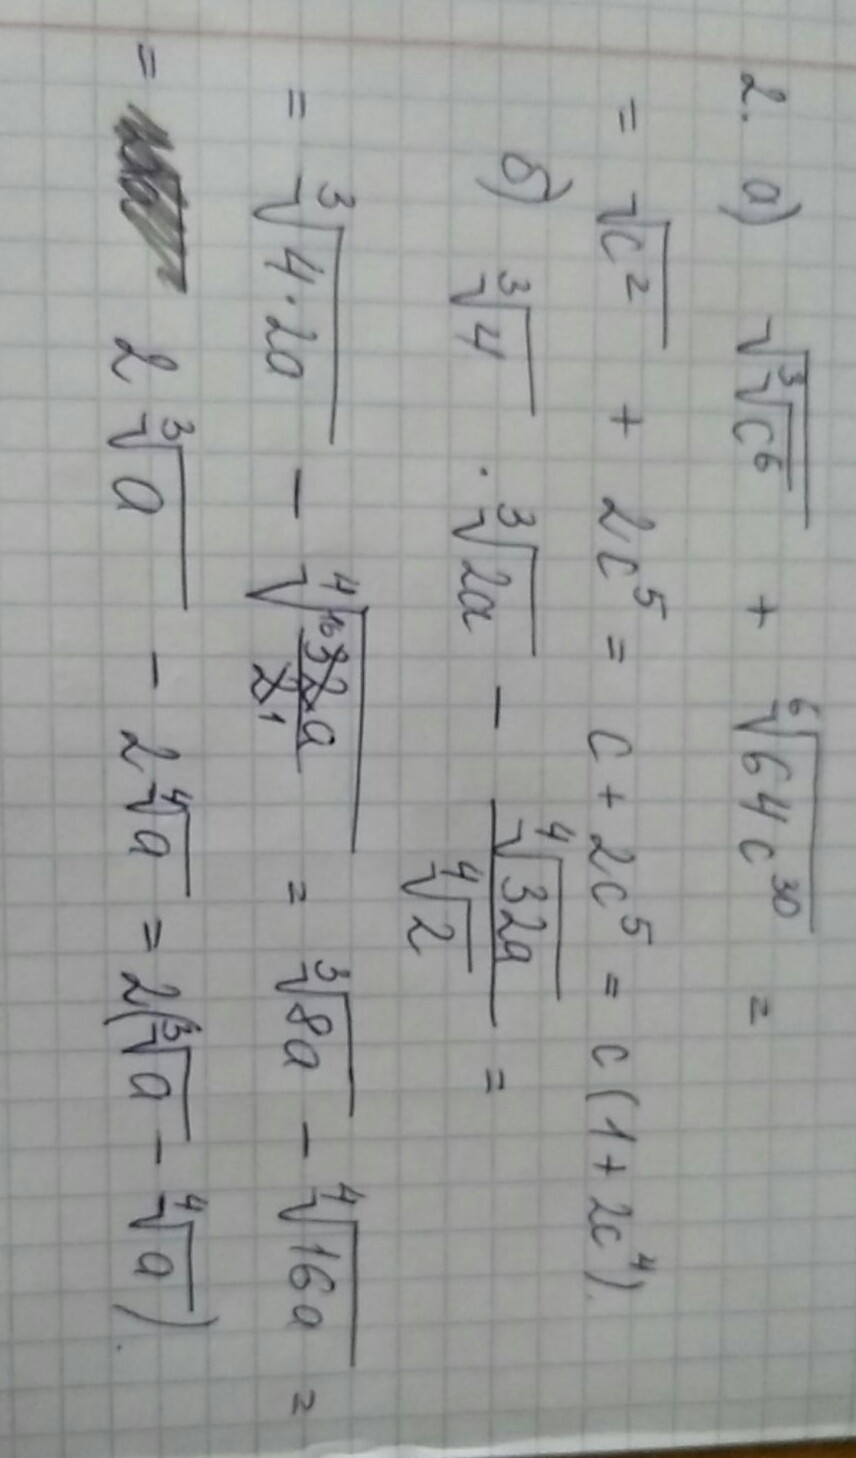 2. а) √∛c⁶ + ⁶√64c³⁰ =
= √c² + 2c⁵ = c + 2c⁵ = c(1 + 2c⁴).
б) ∛4 · ∛2a − ⁴√32a / ⁴√2 =
= ∛4·2a − ⁴√(32a / 2) 16 1 = ∛8a − ⁴√16a =
= 2∛a − 2⁴√a = 2(∛a − ⁴√a).